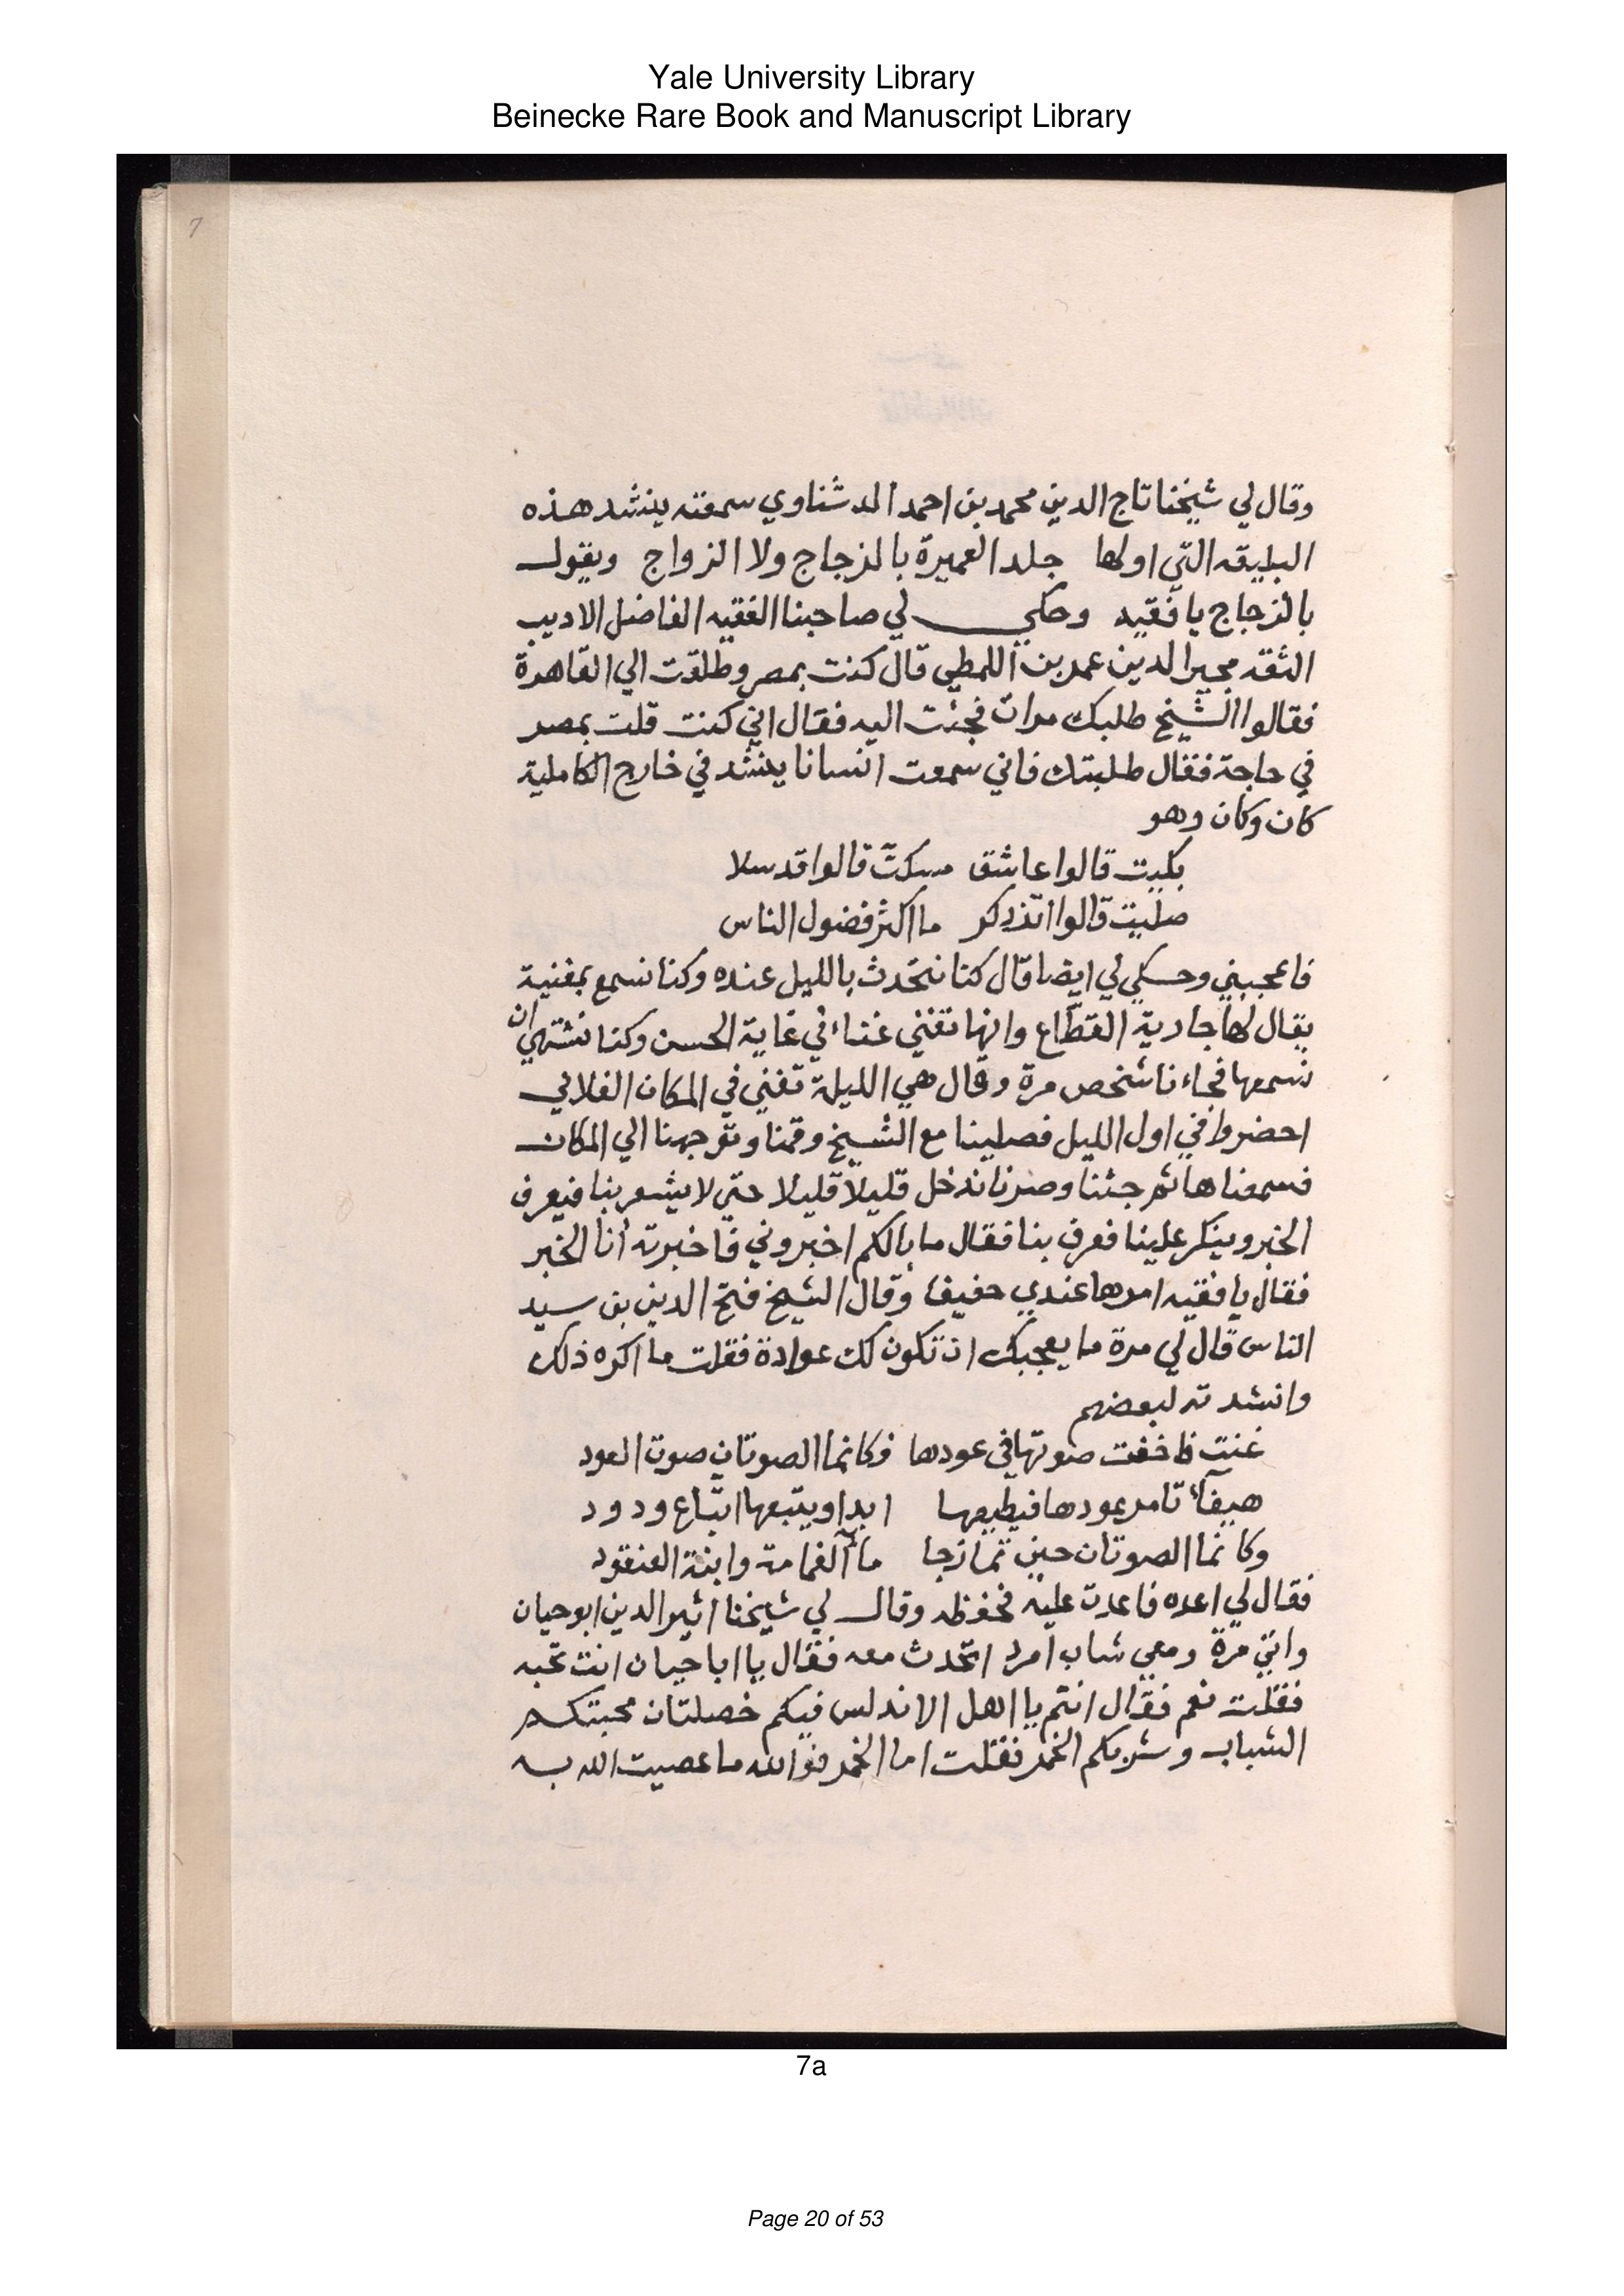 Yale University Library
Beinecke Rare Book and Manuscript Library
7
وقال لي شيخنا تاج الدين محمد بن احمد الدشناوي سمعته ينشد هذه
البليقه التي اولها جلد العميرة بالزجاج ولا الزواج ويقول
بالزجاج يا فقيه وحكي لي صاحبنا الفقيه الفاضل الاديب
الثقه مجير الدين عمر بن اللمطي قال كنت بمصر وطلقت الي القاهرة
فقالوا الشيخ طلبك مرات فجئت اليه فقال اني كنت قلت بمصر
في حاجة فقال طلبتك فاني سمعت انسانا ينشد في خارج الكاملية
كان وكان وهو
بكيت قالوا عاشق سكتّ قالوا قد سلا
صليت قالوا اتذكر ما اكثر فضول الناس
فاعجبني وحكي لي ايضا قال كنا نتحدث بالليل عنده وكنا نسمع بمغنية
يقال لها جارية القطّاع وانها تغني غناء في غاية الحسن وكنا نشتهي ان
نسمعها فجاءنا شخص مرة وقال هي الليلة تغني في المكان الفلاني
احضروا في اول الليل فصلينا مع الشيخ وقمنا وتوجهنا الي المكان
فسمعناها ثم جئنا وصرنا ندخل قليلا قليلا حتي لا يشعر بنا فيعرف
الخبر وينكر علينا فعرف بنا فقال ما بالكم اخبروني فاخبرته انا الخبر
فقال يا فقيه امرها عندي خفيف وقال الشيخ فتح الدين بن سيد
الناس قال لي مرة ما يعجبك ان تكون لك عوادة فقلت ما اكره ذلك
وانشدته لبعضهم
غنت فاخفت صوتها في عودها فكانما الصوتان صوت العود
هيفآء تامر عودها فيطيعها ابدا ويتبعها اتّباع ودود
وكانما الصوتان حين تمازجا مآء الغمامة وابنة العنقود
فقال لي اعده فاعدت عليه فحفظه وقال لي شيخنا اثير الدين ابو حيان
واني مرة ومعي شاب امرد اتحدث معه فقال يا ابا حيان انت تحبه
فقلت نعم فقال انتم يا اهل الاندلس فيكم خصلتان محبتكم
الشباب وشربكم الخمر فقلت اما الخمر فوالله ما عصيت الله به
7a
Page 20 of 53